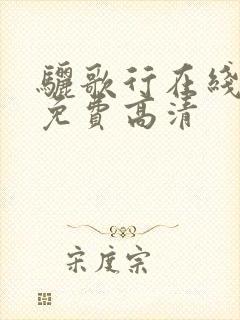 驪歌行在綫
免費高清
宋度宗